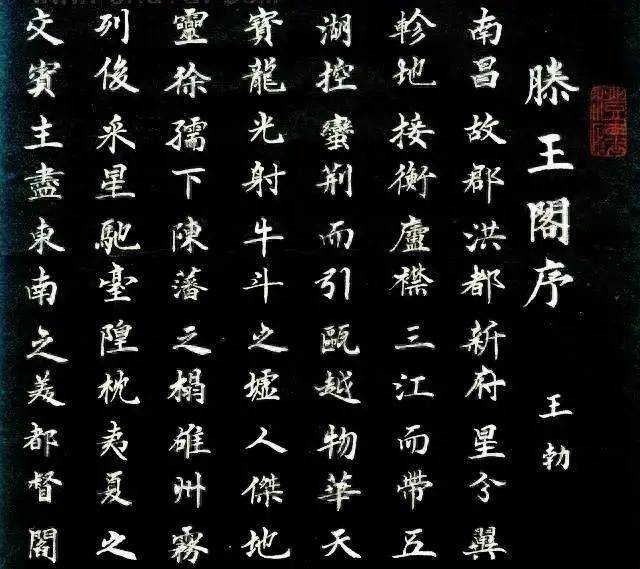 滕王閣序 王勃
南昌故郡洪都新府星分翼
軫地接衡廬襟三江而帶五
湖控蠻荊而引甌越物華天
寶龍光射牛斗之墟人傑地
靈徐孺下陳藩之榻雄州霧
列俊采星馳臺隍枕夷夏之
交賓主盡東南之美都督閣